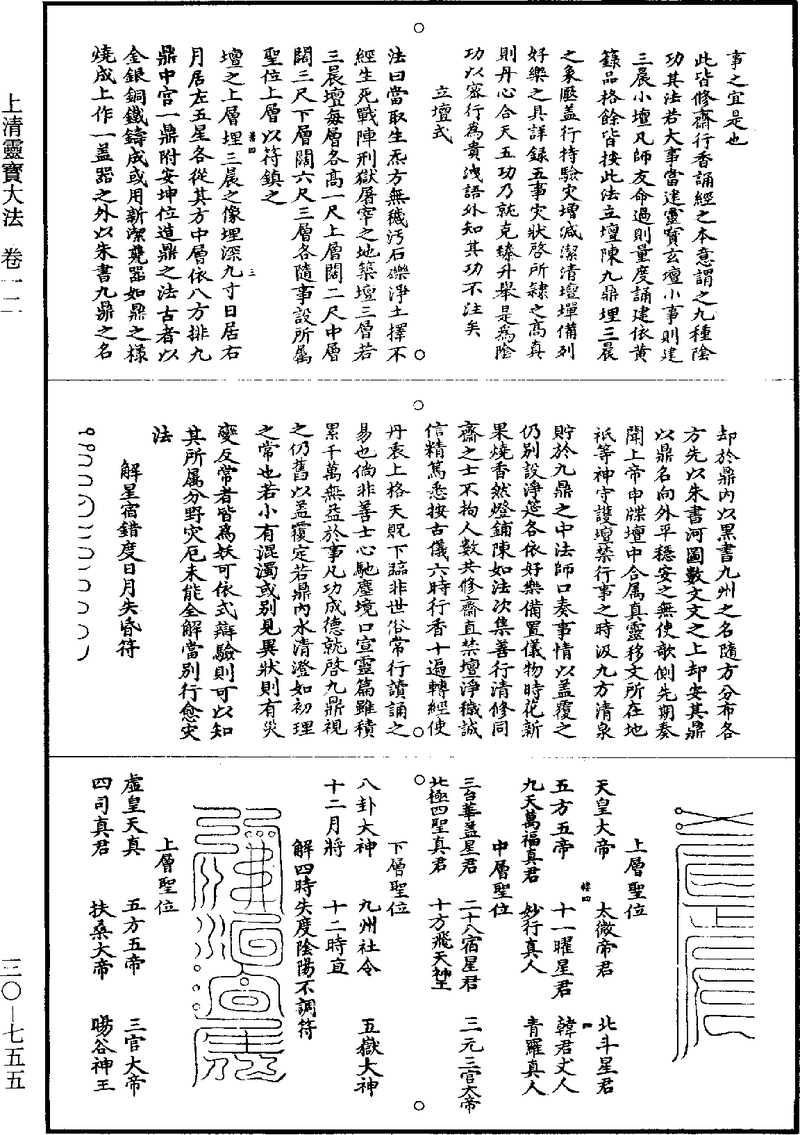 事之宜是也
此皆修齋行香誦經之本意謂之九種陰
功其法若大事當建靈寶玄壇小事則建
三晨小壇凡師友命過則量度誦建依黃
籙品格餘皆按此法立壇陳九鼎埋三晨
之象壓蓋行持驗灾增減潔清壇墠備列
好樂之具詳錄五事灾狀啓所隸之髙真
則丹心合天五功乃就克臻升舉是爲陰
功以密行爲貴洩語外知其功不注矣
立壇式
法曰當取生炁方無穢汚石礫淨土擇不
經生死戰陣刑獄屠宰之地築壇三層若
三晨壇每層各髙一尺上層闊二尺中層
闊三尺下層闊六尺三層各隨事設所屬
聖位上層以符鎮之
壇之上層埋三晨之像埋深九寸日居右
月居左五星各從其方中層依八方排九
鼎中宫一鼎附安坤位造鼎之法古者以
金銀銅鐵鑄成或用新潔甆器如鼎之樣
燒成上作一蓋器之外以朱書九鼎之名
却於鼎内以黒書九州之名隨方分布各
方先以朱書河圖數文文之上却安其鼎
以鼎名向外平穩安之無使欹側先期奏
聞上帝申牒壇中合屬真靈移文所在地
祇等神守護壇禁行事之時汲九方清泉
貯於九鼎之中法師口奏事情以蓋覆之
仍别設淨筵各依好樂備置儀物時花新
果燒香然燈鋪陳如法次集善行清修同
齋之士不拘人數共修齋直禁壇淨穢誠
信精篤悉按古儀六時行香十遍轉經使
丹衷上格天貺下臨非世俗常行讀誦之
易也倘非善士心馳塵境口宣靈篇雖積
累千萬無益於事凡功成德就啓九鼎視
之仍舊以蓋覆定若鼎内水清澄如初理
之常也若小有混濁或别見異狀則有灾
變反常者皆爲妖可依式辯驗則可以知
其所屬分野灾厄未能全解當别行愈灾
法
解星宿錯度日月失昏符
上層聖位
天皇大帝 太微帝君 北斗星君
五方五帝 十一曜星君 韓君丈人
九天萬福真君 妙行真人 青羅真人
中層聖位
三台華蓋星君 二十八宿星君 三元三官大帝
北極四聖真君 十方飛天神王
下層聖位
八卦大神 九州社令 五嶽大神
十二月將 十二時直
解四時失度陰陽不調符
上層聖位
虚皇天真 五方五帝 三官大帝
四司真君 扶桑大帝 暘谷神王
上清靈寶大法 卷一二
三〇—七五五